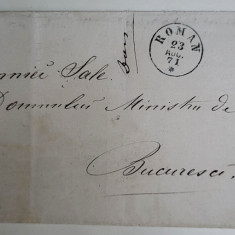 ROMAN
23
AUG.
71
*
Sale
Domnului Ministru de
Bucuresci